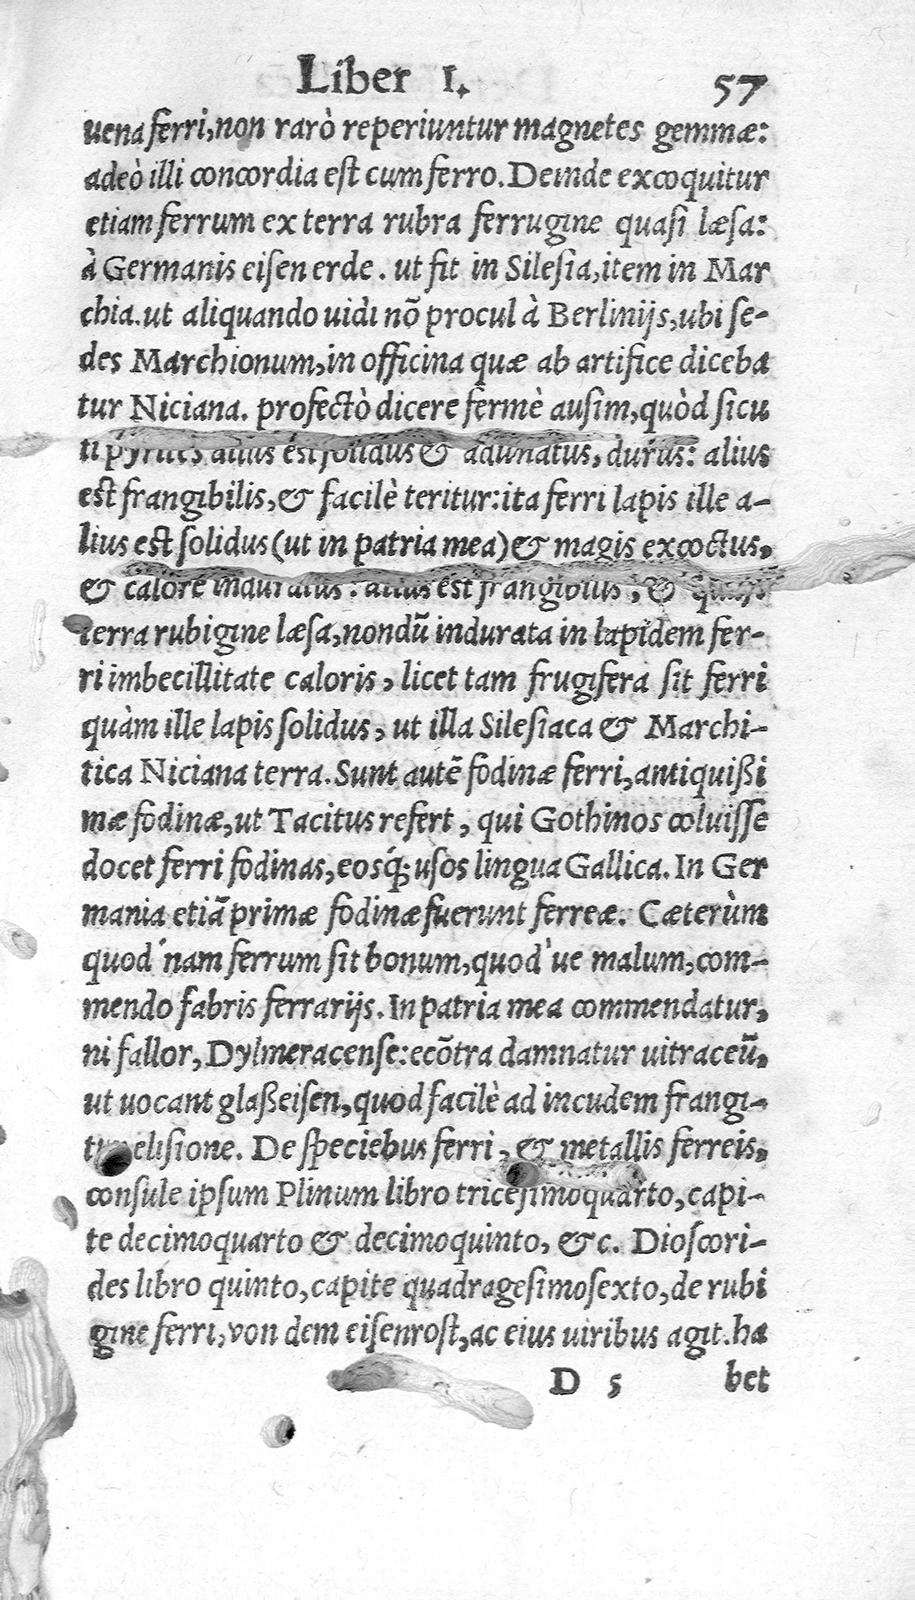 Liber I. 57
uena ferri, non rarò reperiuntur magnetes gemmæ:
adeò illi concordia est cum ferro. Deinde excoquitur
etiam ferrum ex terra rubra ferrugine quasi læsa:
à Germanis eisen erde. ut fit in Silesia, item in Mar
chia. ut aliquando uidi nõ procul à Berlinijs, ubi se-
des Marchionum, in officina quæ ab artifice diceba
tur Niciana. profectò dicere fermè ausim, quòd sicu
ti pyrites alius est solidus & adunatus, durus: alius
est frangibilis, & facilè teritur: ita ferri lapis ille a-
lius est solidus (ut in patria mea) & magis excoctus,
& calore induratus: alius est frangibilis, & quasi
terra rubigine læsa, nondũ indurata in lapidem fer-
ri imbecillitate caloris, licet tam frugifera sit ferri
quàm ille lapis solidus, ut illa Silesiaca & Marchi-
tica Niciana terra. Sunt autẽ fodinæ ferri, antiquißi
mæ fodinæ, ut Tacitus refert, qui Gothinos coluisse
docet ferri fodinas, eosq́; usos lingua Gallica. In Ger
mania etiã primæ fodinæ fuerunt ferreæ. Cæterùm
quod'nam ferrum sit bonum, quod'ue malum, com-
mendo fabris ferrarijs. In patria mea commendatur,
ni fallor, Dylmeracense: ecõtra damnatur uitraceũ,
ut uocant glaßeisen, quod facilè ad incudem frangi-
tur elisione. De speciebus ferri, & metallis ferreis,
consule ipsum Plinum libro tricesimoquarto, capi-
te decimoquarto & decimoquinto, &c. Dioscori-
des libro quinto, capite quadragesimosexto, de rubi
gine ferri, von dem eisenrost, ac eius uiribus agit. ha
D 5 bet